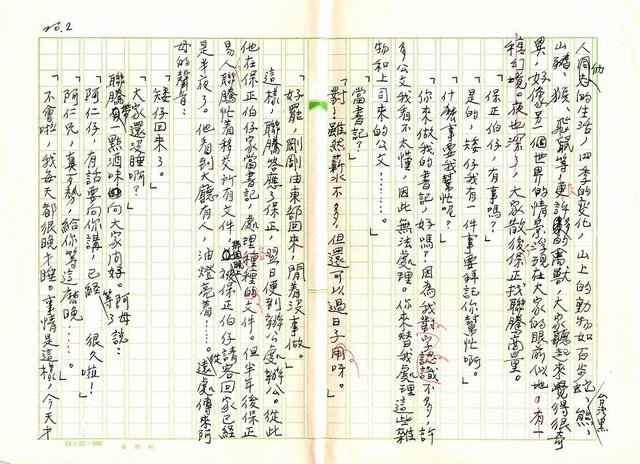 人個他的生活，四季的變化，山上的動物如百步蛇、熊、台灣黑
山豬、猴、飛鼠等，更許多的禽獸，大家聽起來覺得很奇
異，好像另一個世界的情景浮現在大家的眼前似地，有一
種幻境。夜也深了，大家散後保正找聯騰商量。
「保正伯仔，有事嗎？」
「是的，矮仔我有一件事要拜託你幫忙啊。」
「什麼事要我幫忙呢？」
「你來做我的書記，好嗎？因為我對字認識不多，許
多公文我看不太懂，因此無法處理。你來替我處理這些雜
物和上司來的公文……」
「當書記？」
「對！雖然薪水不多，但還可以過日子用呀。」
「好罷，剛剛由東部回來，閒着沒事做。」
這樣，聯騰答應了保正，翌日便到辦公處辦公。從此
他在保正伯仔家當書記，處理種種的文件。但半年後保正
易人聯騰忙着移交所有文件，被保正伯仔請客回家已經
是半夜了。他看到大廳有人，油燈亮着……從遠處傳來阿
母的聲音：
「矮仔回來了。」
「大家還沒睡啊？」
聯騰帶一點酒味向大家問好。阿母說：
「阿仁仔，有話要向你講，已經等了很久啦！」
「阿仁兄，真歹勢，給你等這麼晚……。」
「不會啦，我每天都很晚才睡。事情是這樣，今天才
No.2
24×25=600